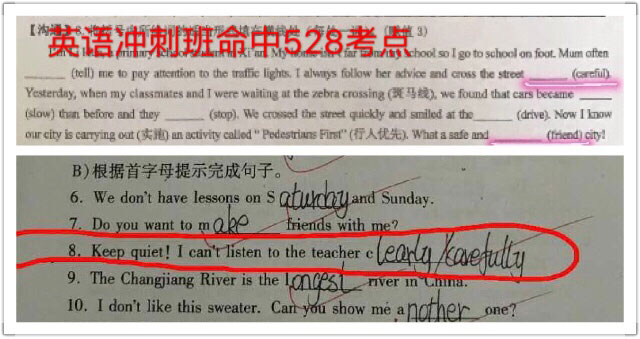 英语冲刺班命中528考点
school so I go to school on foot. Mum often
______ (tell) me to pay attention to the traffic lights. I always follow her advice and cross the street ______ (careful).
Yesterday, when my classmates and I were waiting at the zebra crossing (斑马线), we found that cars became ______
(slow) than before and they ______ (stop). We crossed the street quickly and smiled at the ______ (drive). Now I know
our city is carrying out (实施) an activity called "Pedestrians First" (行人优先). What a safe and ______ (friend) city!
B)根据首字母提示完成句子。
6. We don't have lessons on Saturday and Sunday.
7. Do you want to make friends with me?
8. Keep quiet! I can't listen to the teacher clearly/carefully
9. The Changjiang River is the longest river in China.
10. I don't like this sweater. Can you show me another one?